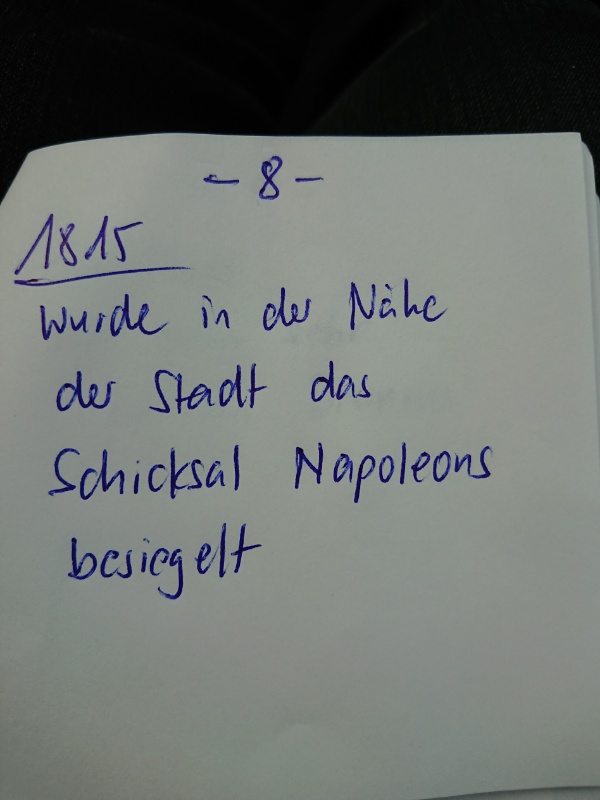 - 8 -
1815
wurde in der Nähe
der Stadt das
Schicksal Napoleons
besiegelt